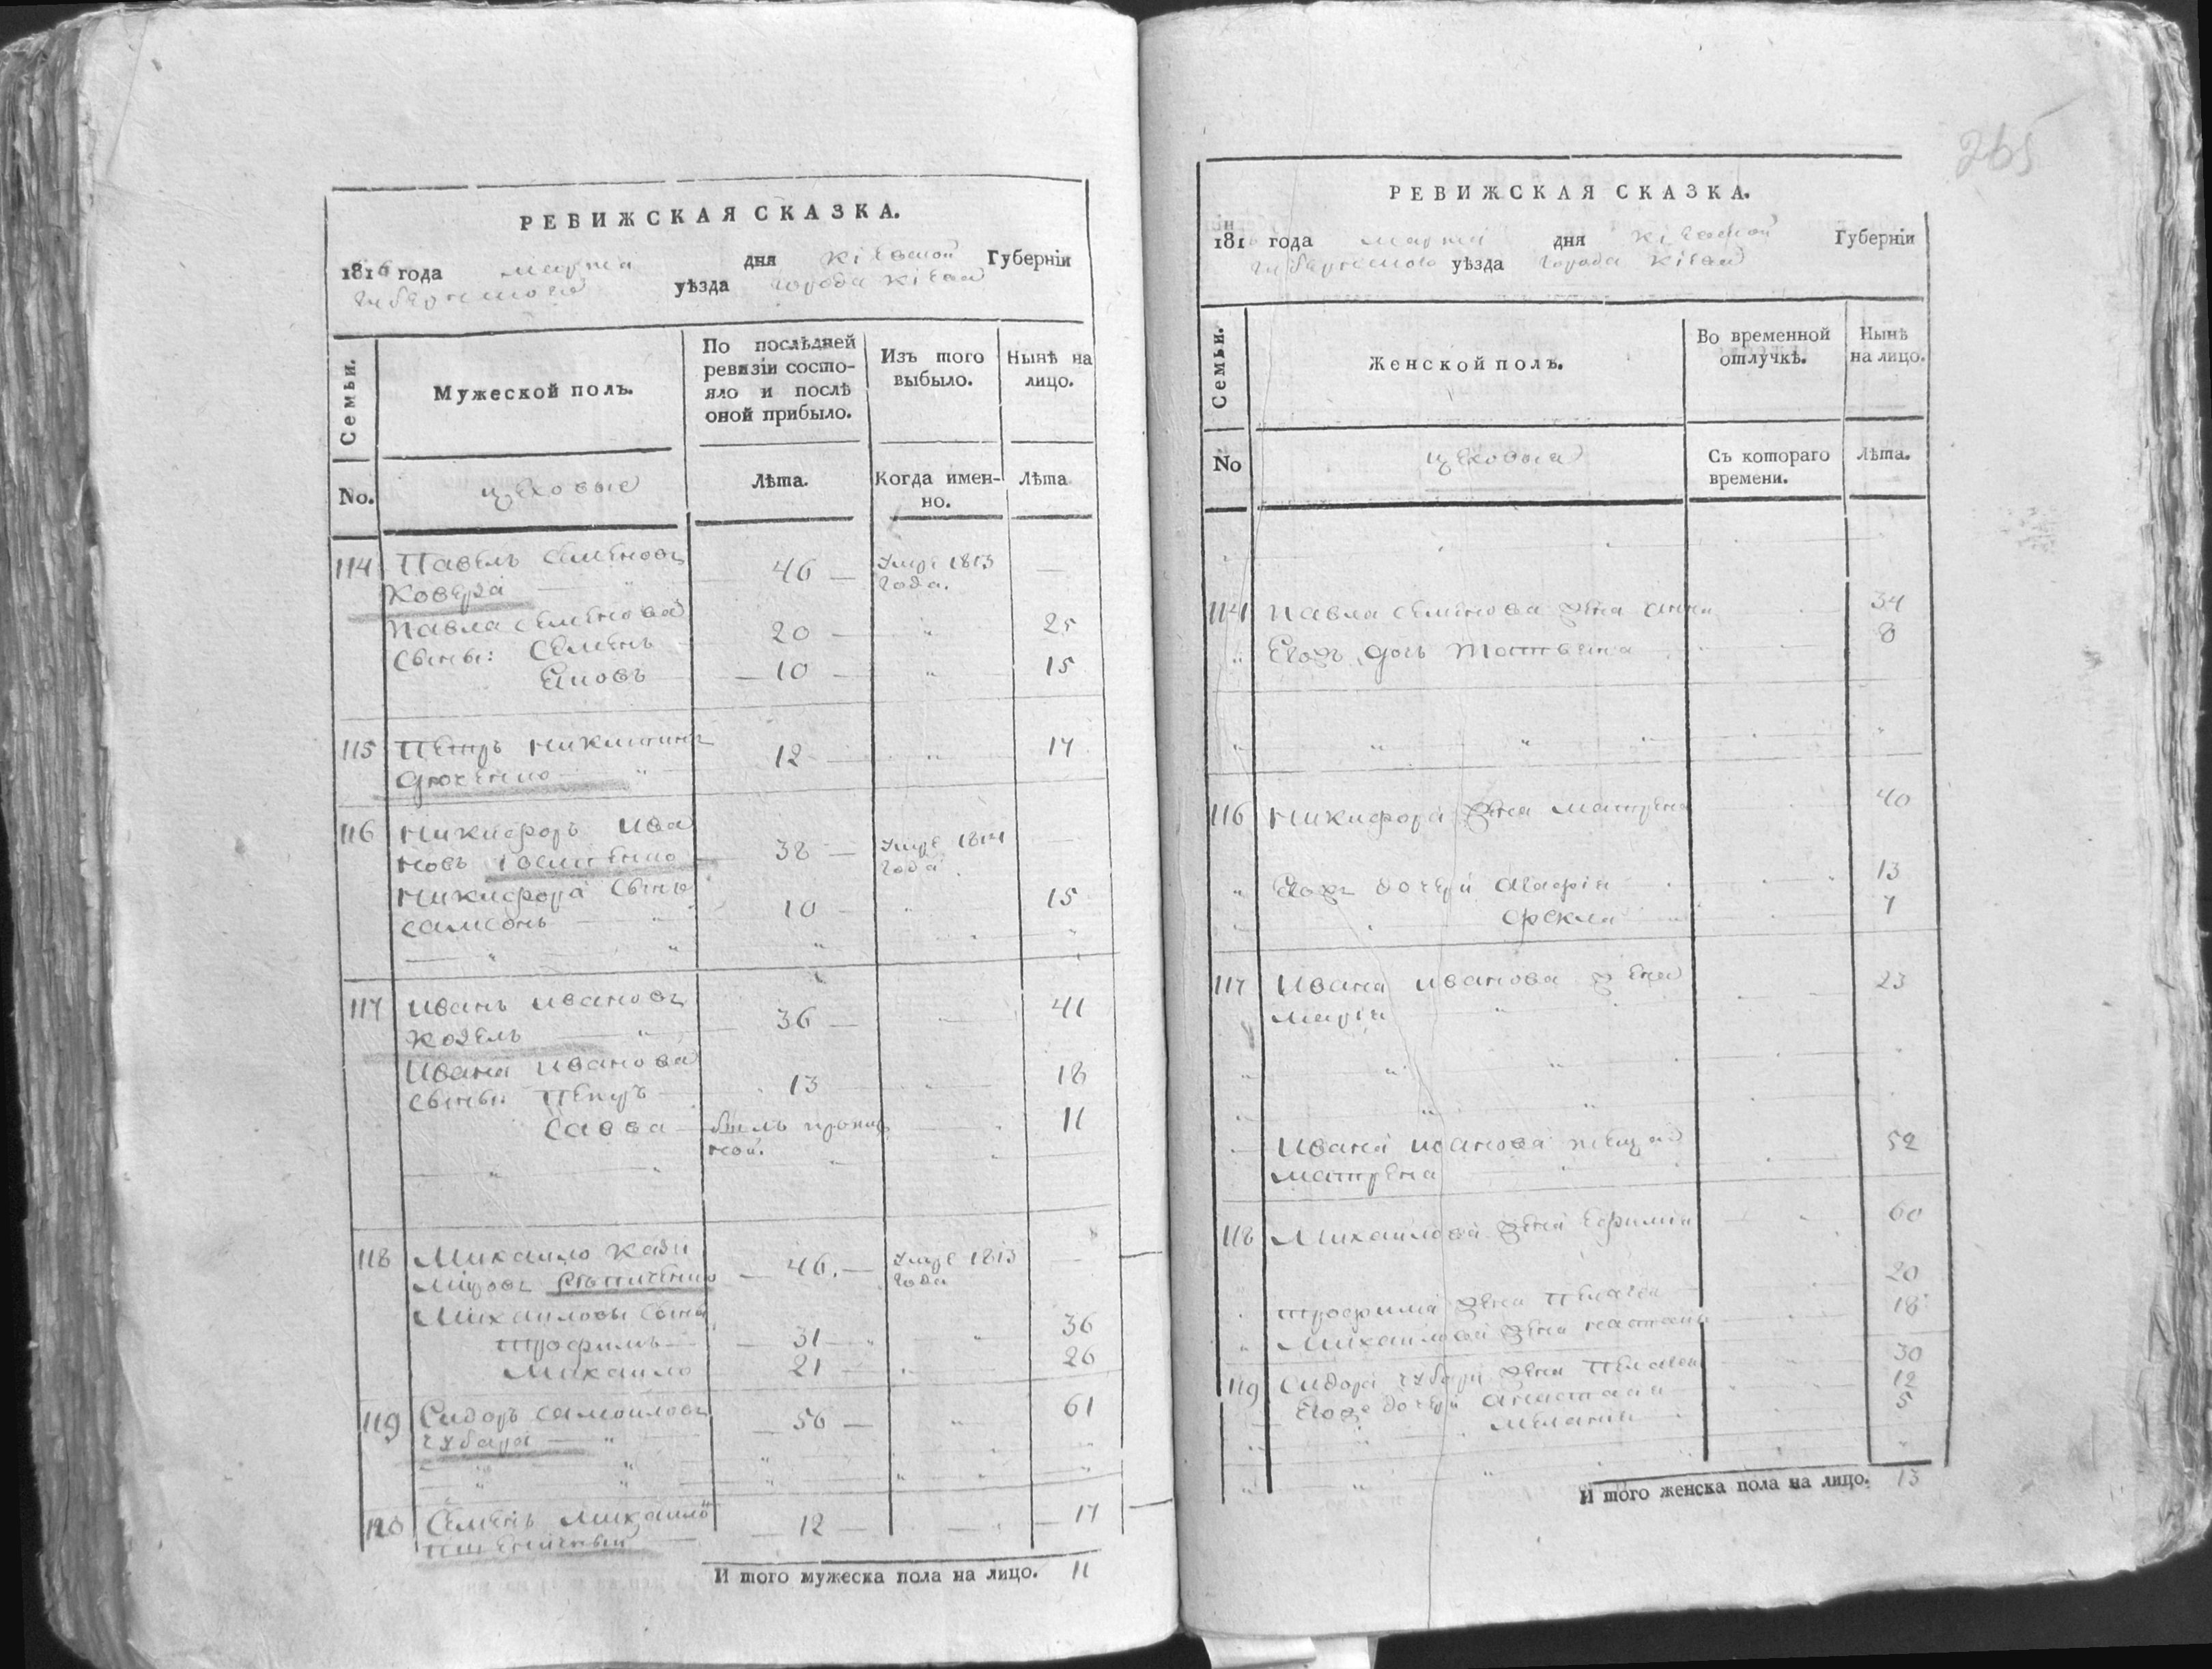 265
РЕВИЖСКАЯ СКАЗКА.
1816 года марта дня Кіевской Губерніи
уѣзда города Кіева
Семьи.
Мужеской полъ.
По послѣдней
ревизіи состо-
яло и послѣ
оной прибыло.
Изъ того
выбыло.
Нынѣ на
лицо.
No.
цеховые
Лѣта.
Когда имен-
но.
Лѣта
114 Павелъ Семеновъ
Ковера 46 Умре 1813
года.
Павла Семенова
Сыны: Семенъ 20 25
10 15
115 Петръ Никитинъ 12 17
116 Никифоръ Ива
новъ 38 Умре 1814
года
Никифора Сынъ
Самсонъ 10 15
117 Иванъ Ивановъ
Козелъ 36 41
Ивана Иванова
Сыны: Петръ 13 18
Савва 11
118 Михайло Кази
міровъ 46. Умре 1813
года
Михайловы Сыны
Трофимъ 31 36
Михайло 21 26
119 Сидоръ Самойловъ 56 61
Чубарь
120 Семенъ Михайло 12 17
Пшеничный
И того мужеска пола на лицо. 11
РЕВИЖСКАЯ СКАЗКА.
1816 года марта дня Кіевской Губерніи
уѣзда города Кіева
Семьи.
Женской полъ.
Во временной
отлучкѣ.
Нынѣ
на лицо.
No
цеховые
Съ котораго
времени.
Лѣта.
114 Павла Семенова жена Анна 34
Егожъ дочь Татьяна 8
116 Никифора жена Матрена 40
Егожъ дочери Агафія 13
Фекла 7
117 Ивана Иванова жена 23
Марія
Ивана Иванова теща 52
Матрена
118 Михайлова жена Ефимія 60
Трофима жена Пелагея 20
Михайлова жена 18
119 Сидора Чубаря жена Пелагея 30
Егожъ дочери Анастасія 12
Меланія 5
И того женска пола на лицо. 13